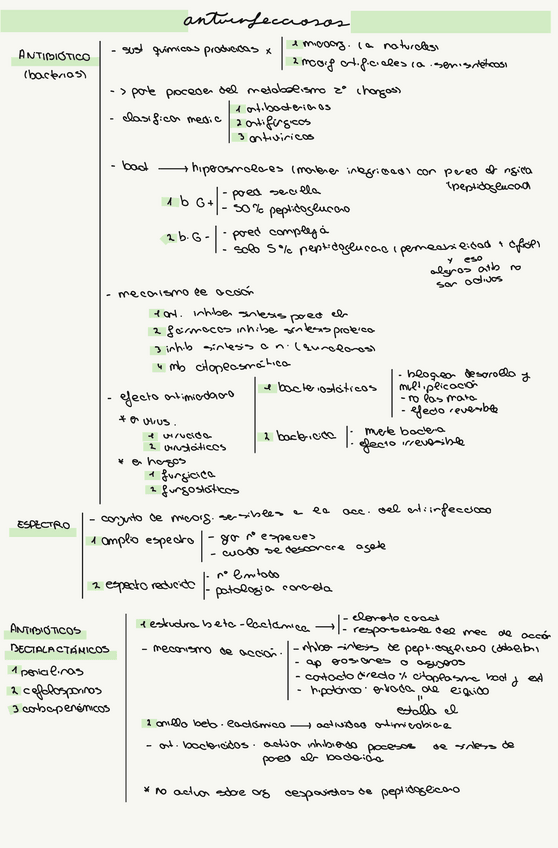 antiinfecciosos
ANTIBIÓTICO
(bacterias)
- sust químicas producidas x
1 microorg. (a naturales)
2 microorg artificiales (a. semisintéticos)
- > parte proceden del metabolismo 2º (hongos)
- clasifican medic
1 antibacterianos
2 antifúngicos
3 antivíricos
- bact → hiperosmolares (mantener integridad) con pared rígida
(peptidoglucano)
1 b G+
- pared sencilla
- 50% peptidoglucano
2 b. G-
- pared compleja
- solo 5% peptidoglucano (permeabilidad
x eso
algunos atb no
son activos
- mecanismo de acción
1 ant. inhiben síntesis pared
2 fármacos inhiben síntesis proteica
3 inhib síntesis a. n. (quinolonas)
4 mb citoplasmática
- efecto antimicrobiano
1 bacteriostáticos
- bloquean desarrollo y
multiplicación
- no las mata
- efecto reversible
2 bactericida
- muere bacteria
- efecto irreversible
* en virus.
1 virucida
2 virustáticos
* en hongos
1 fungicida
2 fungostáticos
ESPECTRO
- conjunto de microorg. sensibles a la acc. del antiinfeccioso
1 amplio espectro
- gran nº especies
- cuando se desconoce agente
2 espectro reducido
- nº limitado
- patología concreta
ANTIBIÓTICOS
BETALACTÁMICOS
1 penicilinas
2 cefalosporinas
3 carbapenémicos
1 estructura beta-lactámica →
- elemento común
- responsable del mec de acción
- mecanismo de acción.
- inhiben síntesis de peptidoglicano (debilitan)
- ap erosiones o agujeros
- contacto directo % citoplasma bact y ext
- hipotónico. entrada de líquido
"
estalla
2 anillo beta-lactámico → actividad antimicrobiana
- ant. bactericidas. actúan inhibiendo procesos de síntesis de
pared bacteriana
* no actúan sobre org desprovistos de peptidoglicano